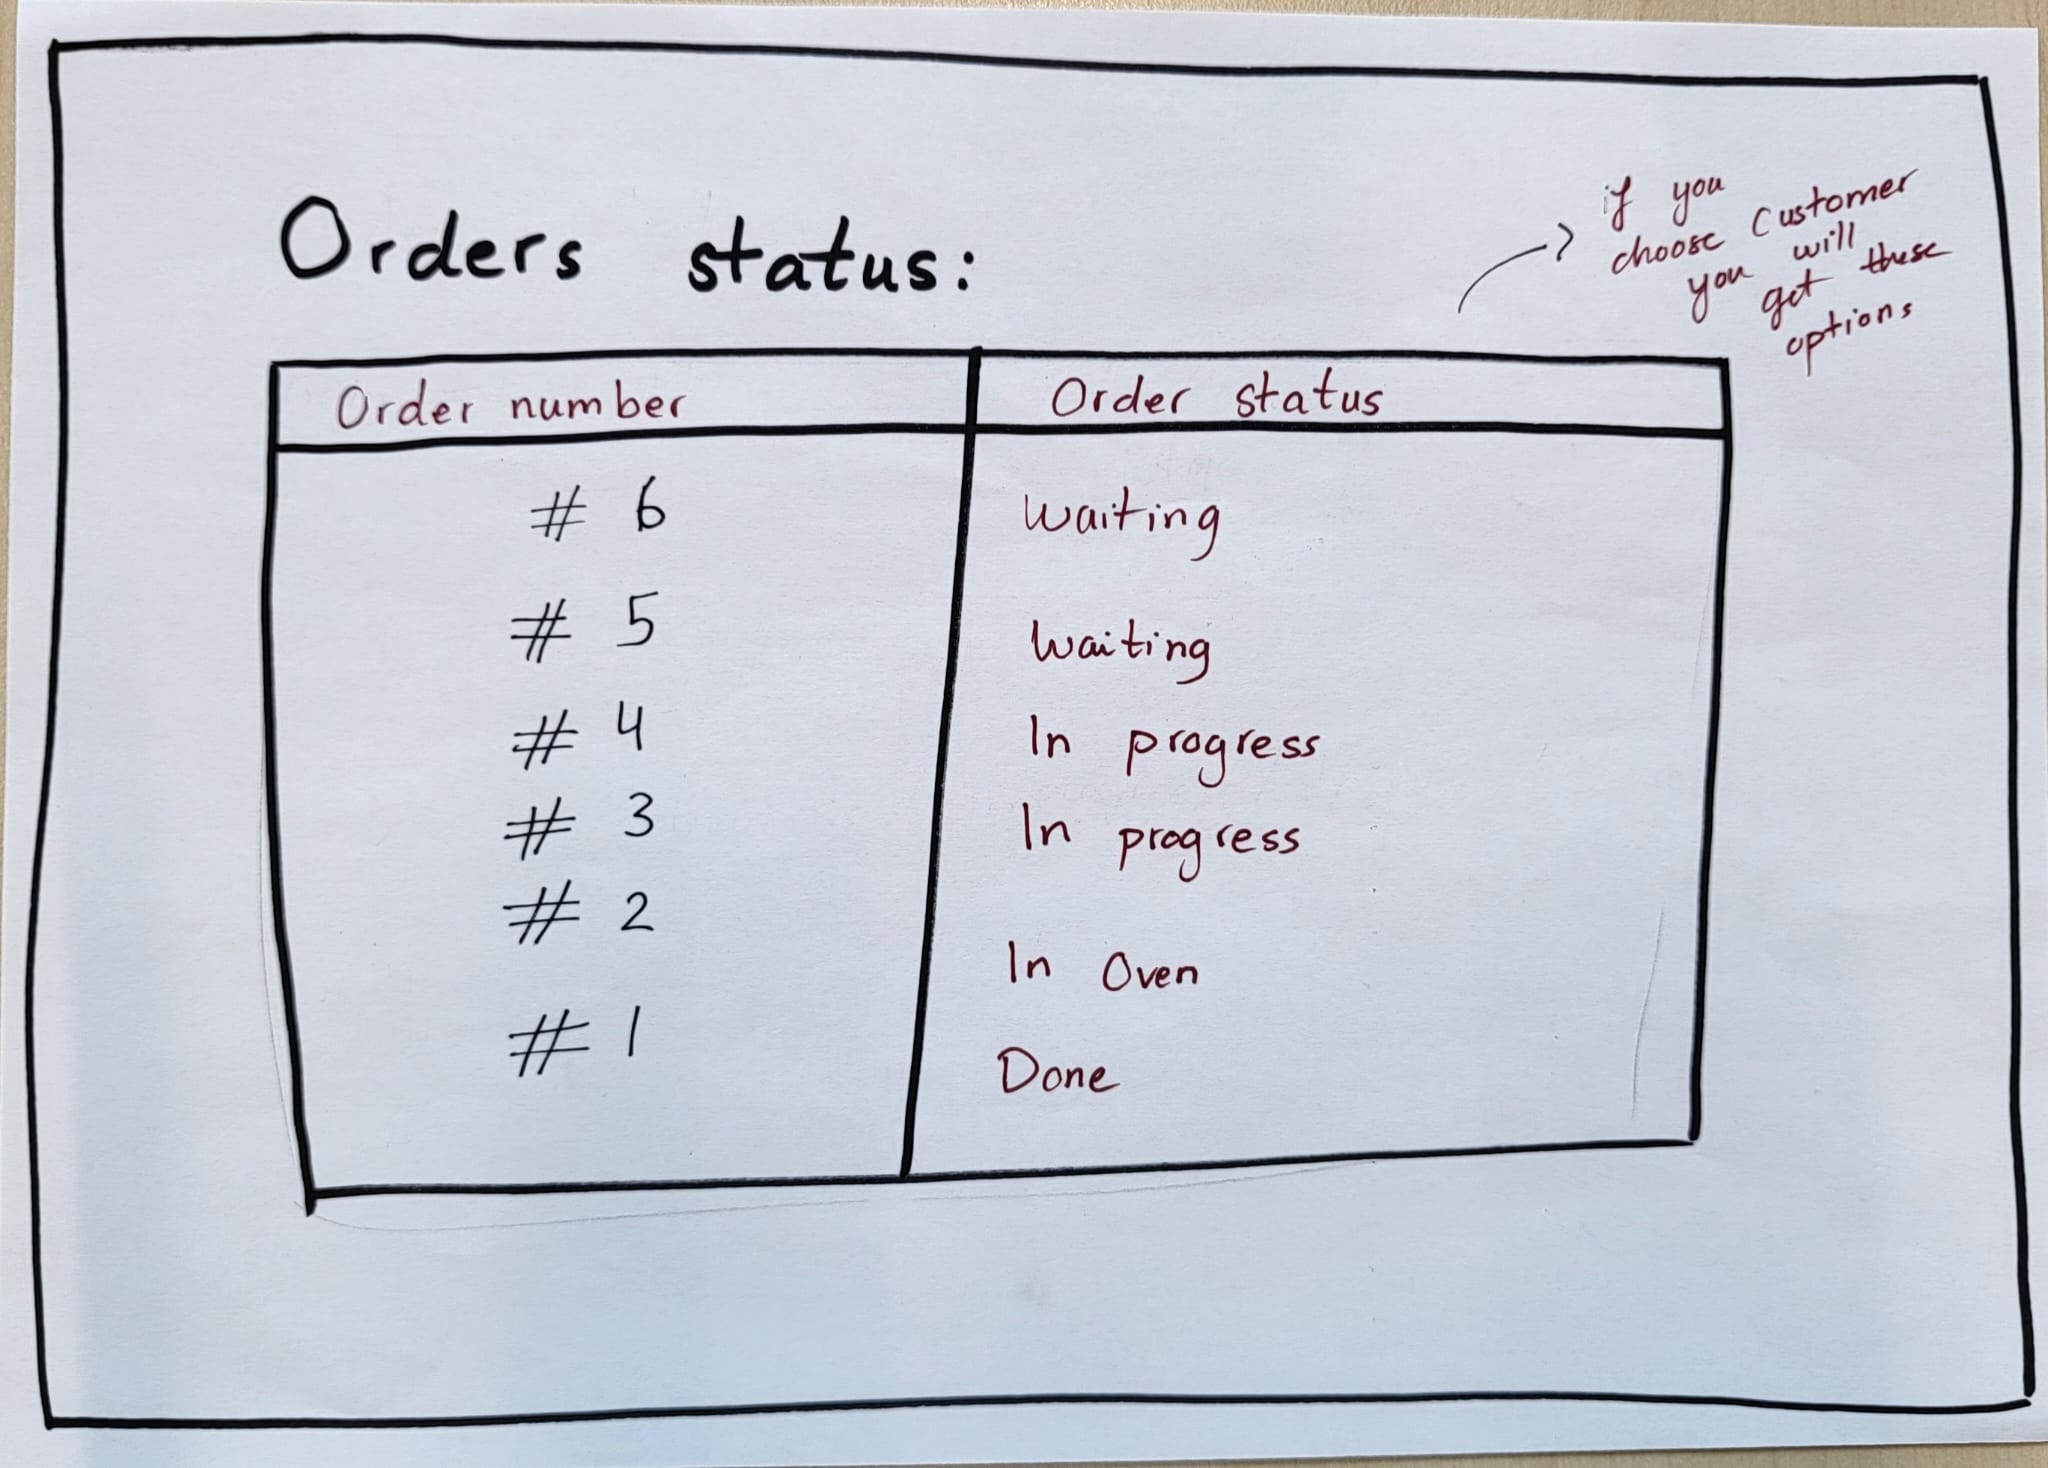 Orders status:
if you
choose Customer
you will
get these
options
Order number Order status
# 6 Waiting
# 5 Waiting
# 4 In progress
# 3 In progress
# 2 In Oven
# 1 Done